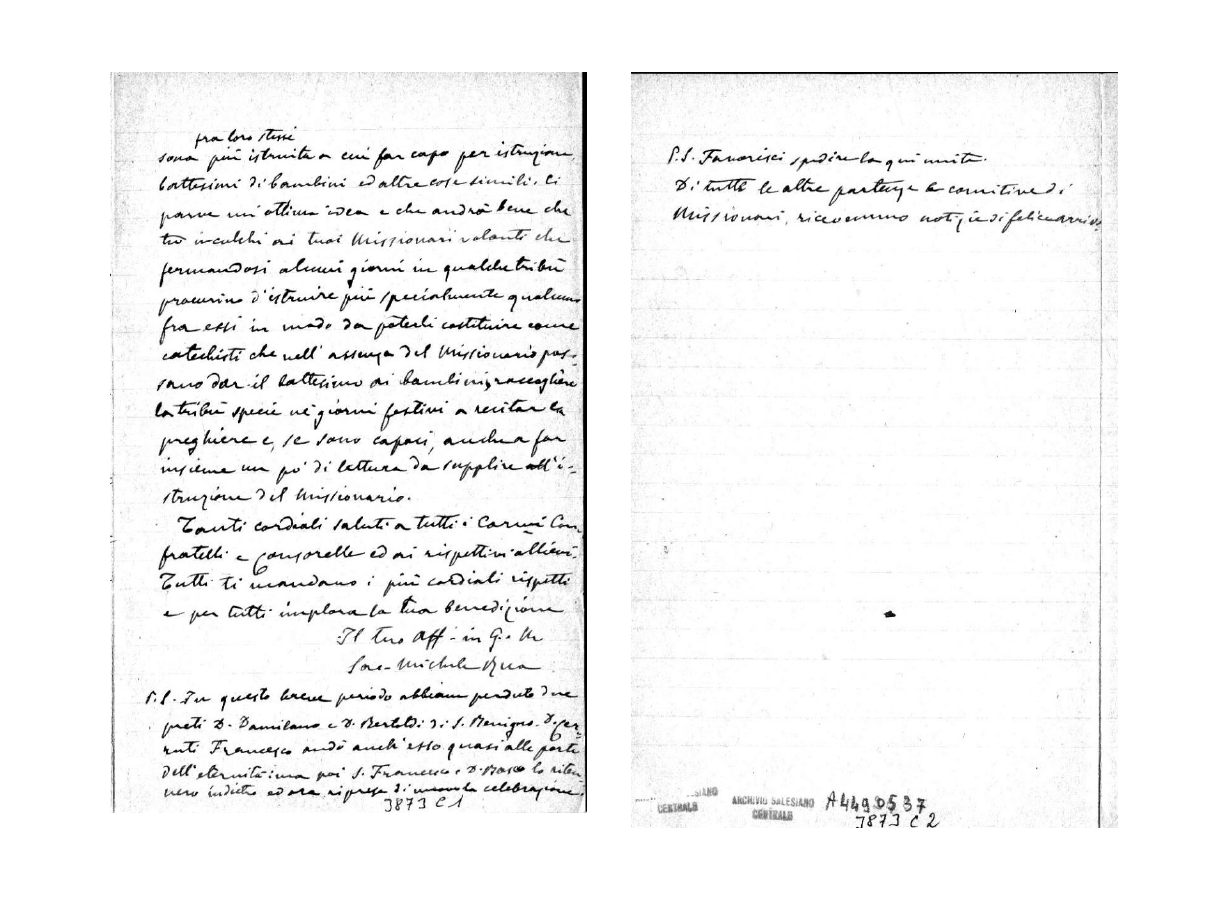 fra loro stessi
sona più istruita a cui far capo per istruzione,
battesimi di bambini ed altre cose simili. Ci
parve un'ottima idea e che andrà bene che
tu inculchi ai tuoi Missionari volanti che
fermandosi alcuni giorni in qualche tribù
procurino d'istruire più specialmente qualcuno
fra essi in modo da poterli costituire come
catechisti che nell'assenza del Missionario pos-
sano dar il battesimo ai bambini, raccogliere
la tribù specie nei giorni festivi a recitar le
preghiere e, se sono capaci, anche a far
insieme un po' di lettura da supplire all'i-
struzione del Missionario.
Tanti cordiali saluti a tutti i Carmi Con
fratelli e Consorelle ed ai rispettivi allievi.
Tutti ti mandano i più cordiali rispetti
e per tutti implora la tua benedizione
Il tuo Aff. in G. e M.
Sac. Michele Rua
P.S. In questo breve periodo abbiam perduto due
preti D. Damilano e D. Bertoldi di S. Benigno. D. Cer-
ruti Francesco andò anch'esso quasi alle porte
dell'eternità: ma poi S. Francesco e D. Bosco lo riten-
nero indietro ed ora riprese di nuovo la celebrazione.
3873 C 1
P.S. Favorisci spedire la qui unita.
Di tutte le altre partenze e comitive di
Missionari, ricevemmo notizie di felice arrivo.
SIANO
CENTRALE
ARCHIVIO SALESIANO
CENTRALE
A4490537
3873 C 2